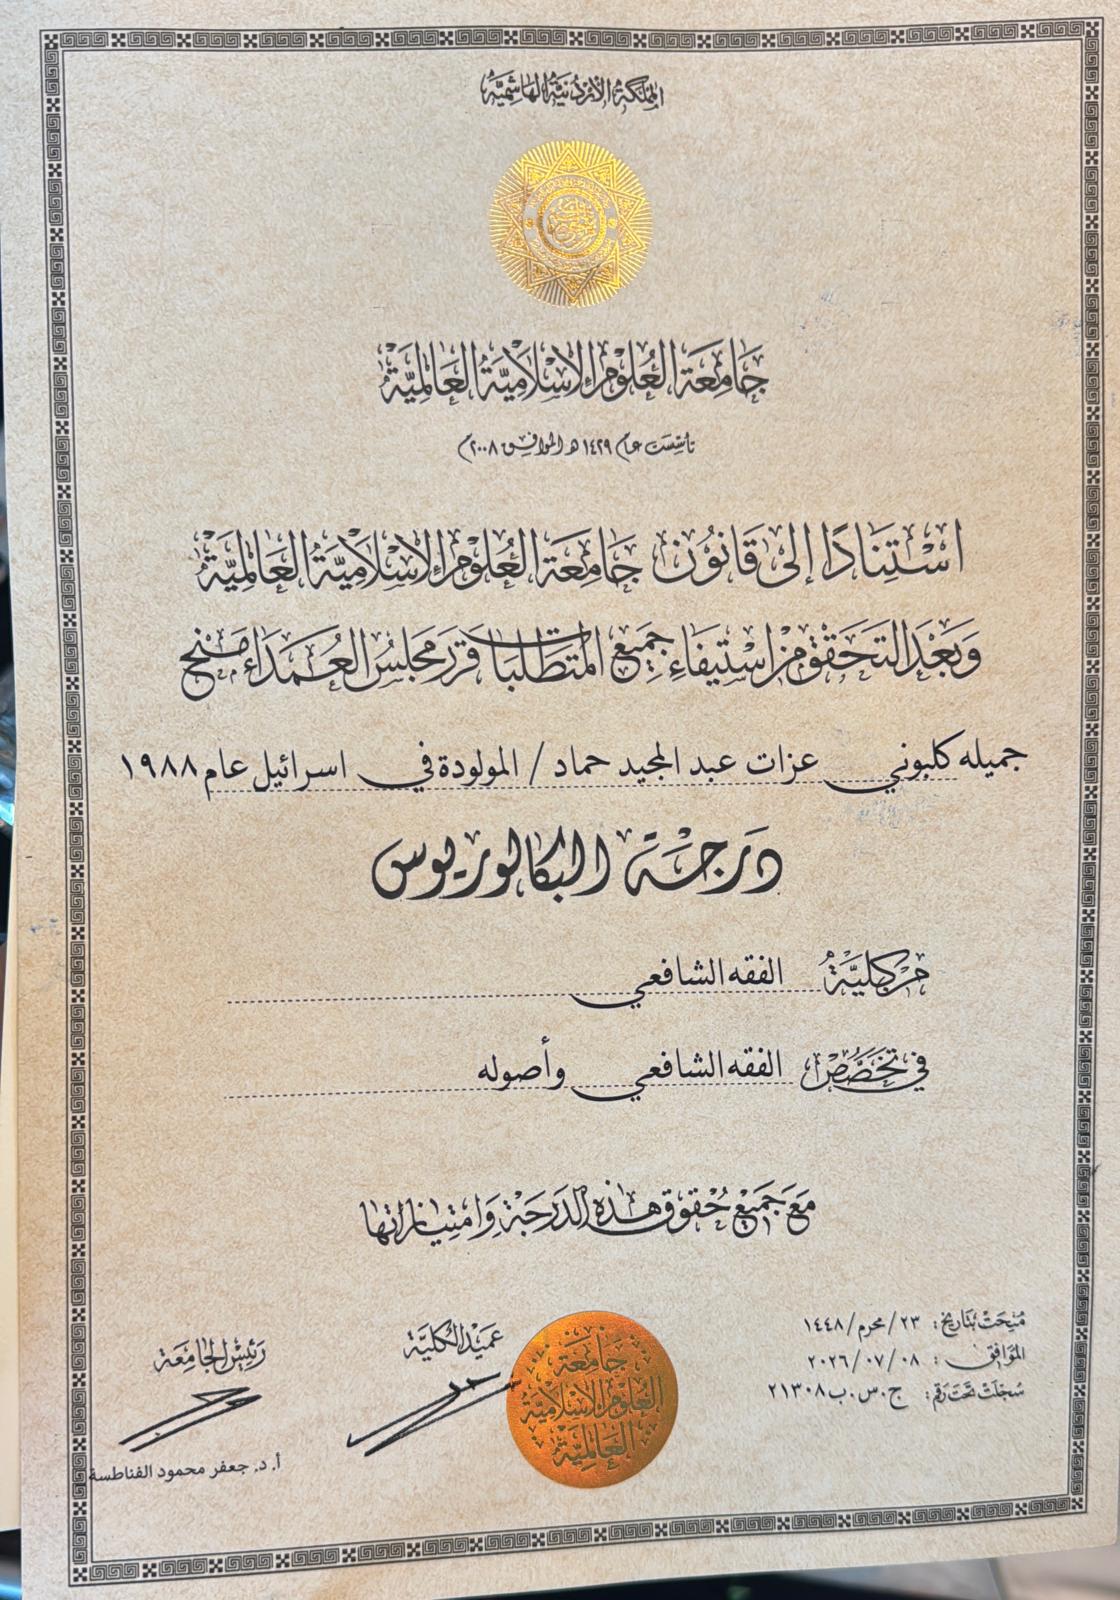 المملكة الأردنية الهاشمية
جَامِعَة العُلُوم الإسْلَاميَّة العَالميَّة
تأسّست عام ١٤٢٩ هـ الموافق ٢٠٠٨م
اسْتِنَادًا إلى قَانُون جَامِعَة العُلُوم الإسْلَاميَّة العَالميَّة
وَبَعْدَ التحَقق من اسْتِيفَاءِ جَمِيع المتَطلبَات قَرّرَ مَجلسُ العُمَدَاء مَنح
جميله كلبوني عزات عبد المجيد حماد / المولودة في اسرائيل عام ١٩٨٨
دَرجَة البكالوريوس
من كليَّة الفقه الشافعي
في تخَصّص الفقه الشافعي وأصوله
مَعَ جَميْع حُقوق هذه الدَرجَة وَامتيَازاتها
مُنِحَت بتَاريخ: ٢٣/محرم/١٤٤٨
الموَافق: ٢٠٢٦/٠٧/٠٨
سُجلَت تحتَ رَقم: ج.س.ب ٢١٣٠٨
عَميْد الكليَّة
رَئيْس الجَامعَة
أ. د. جعفر محمود الفناطسة
جَامعَة
العُلوم الإسْلاميَّة
العَالميَّة